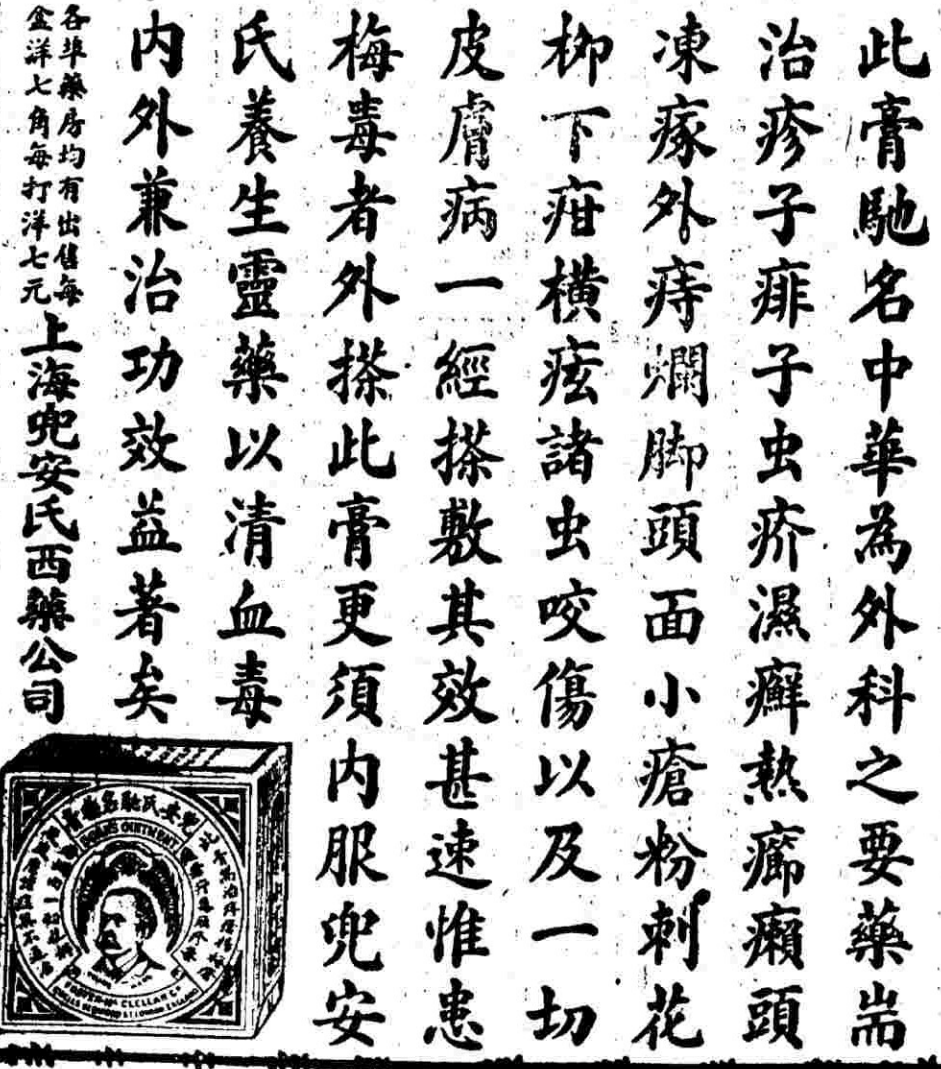 此膏馳名中華為外科之要藥耑
治疹子痱子虫疥濕癬熱癤癩頭
凍瘃外痔爛脚頭面小瘡粉刺花
柳下疳橫痃諸虫咬傷以及一切
皮膚病一經搽敷其效甚速惟患
梅毒者外搽此膏更須内服兜安
氏養生靈藥以清血毒
内外兼治功效益著矣
各埠藥房均有出售每
盒洋七角每打洋七元
上海兜安氏西藥公司
兜安氏馳名癬膏
DOAN'S OINTMENT
FOSTER-McCLELLAN Co